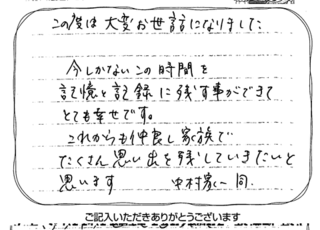 この度は大変お世話になりました
今しかないこの時間を
記憶と記録に残す事ができて
とても幸せです。
これからも仲良し家族で
たくさん思い出を残していきたいと
思います 中村家一同.
ご記入いただきありがとうございます